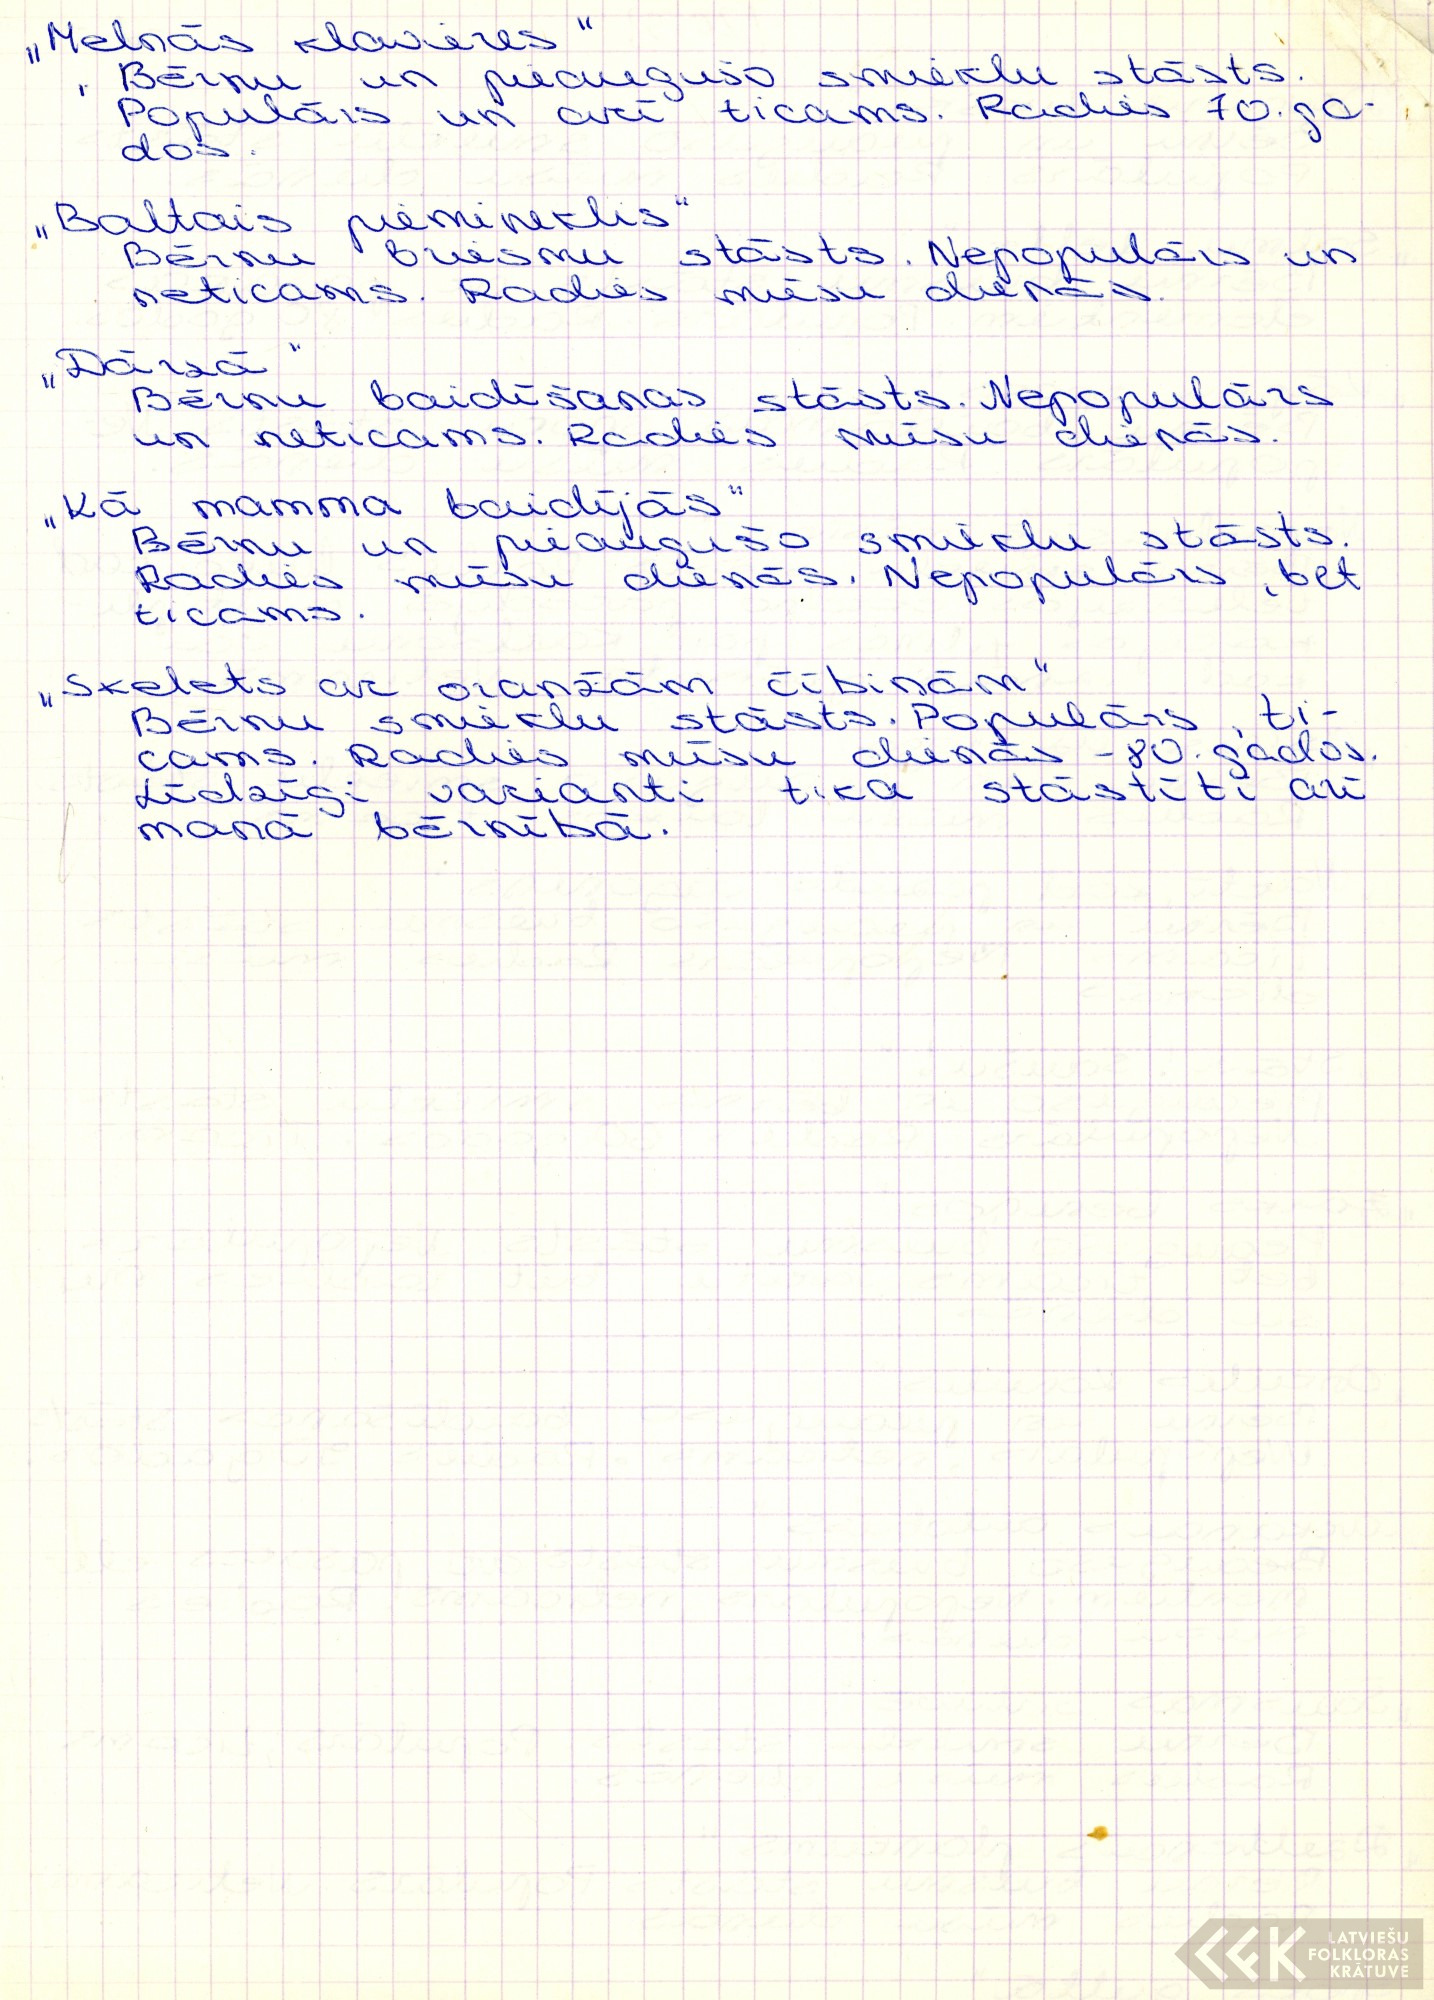 „Melnās klavieres“
Bērnu un pieaugušo smieklu stāsts.
Populārs un arī ticams. Radies 70. ga-
dos.
„Baltais piemineklis“
Bērnu briesmu stāsts. Nepopulārs un
neticams. Radies mūsu dienās.
„Dārzā“
Bērnu baidīšanas stāsts. Nepopulārs
un neticams. Radies mūsu dienās.
„Kā mamma baidījās“
Bērnu un pieaugušo smieklu stāsts.
Radies mūsu dienās. Nepopulārs, bet
ticams.
„Skelets ar oranžām čībiņām“
Bērnu smieklu stāsts. Populārs, ti-
cams. Radies mūsu dienās - 80. gados.
Līdzīgi varianti tika stāstīti arī
manā bērnībā.
LATVIEŠU
FOLKLORAS
KRĀTUVE